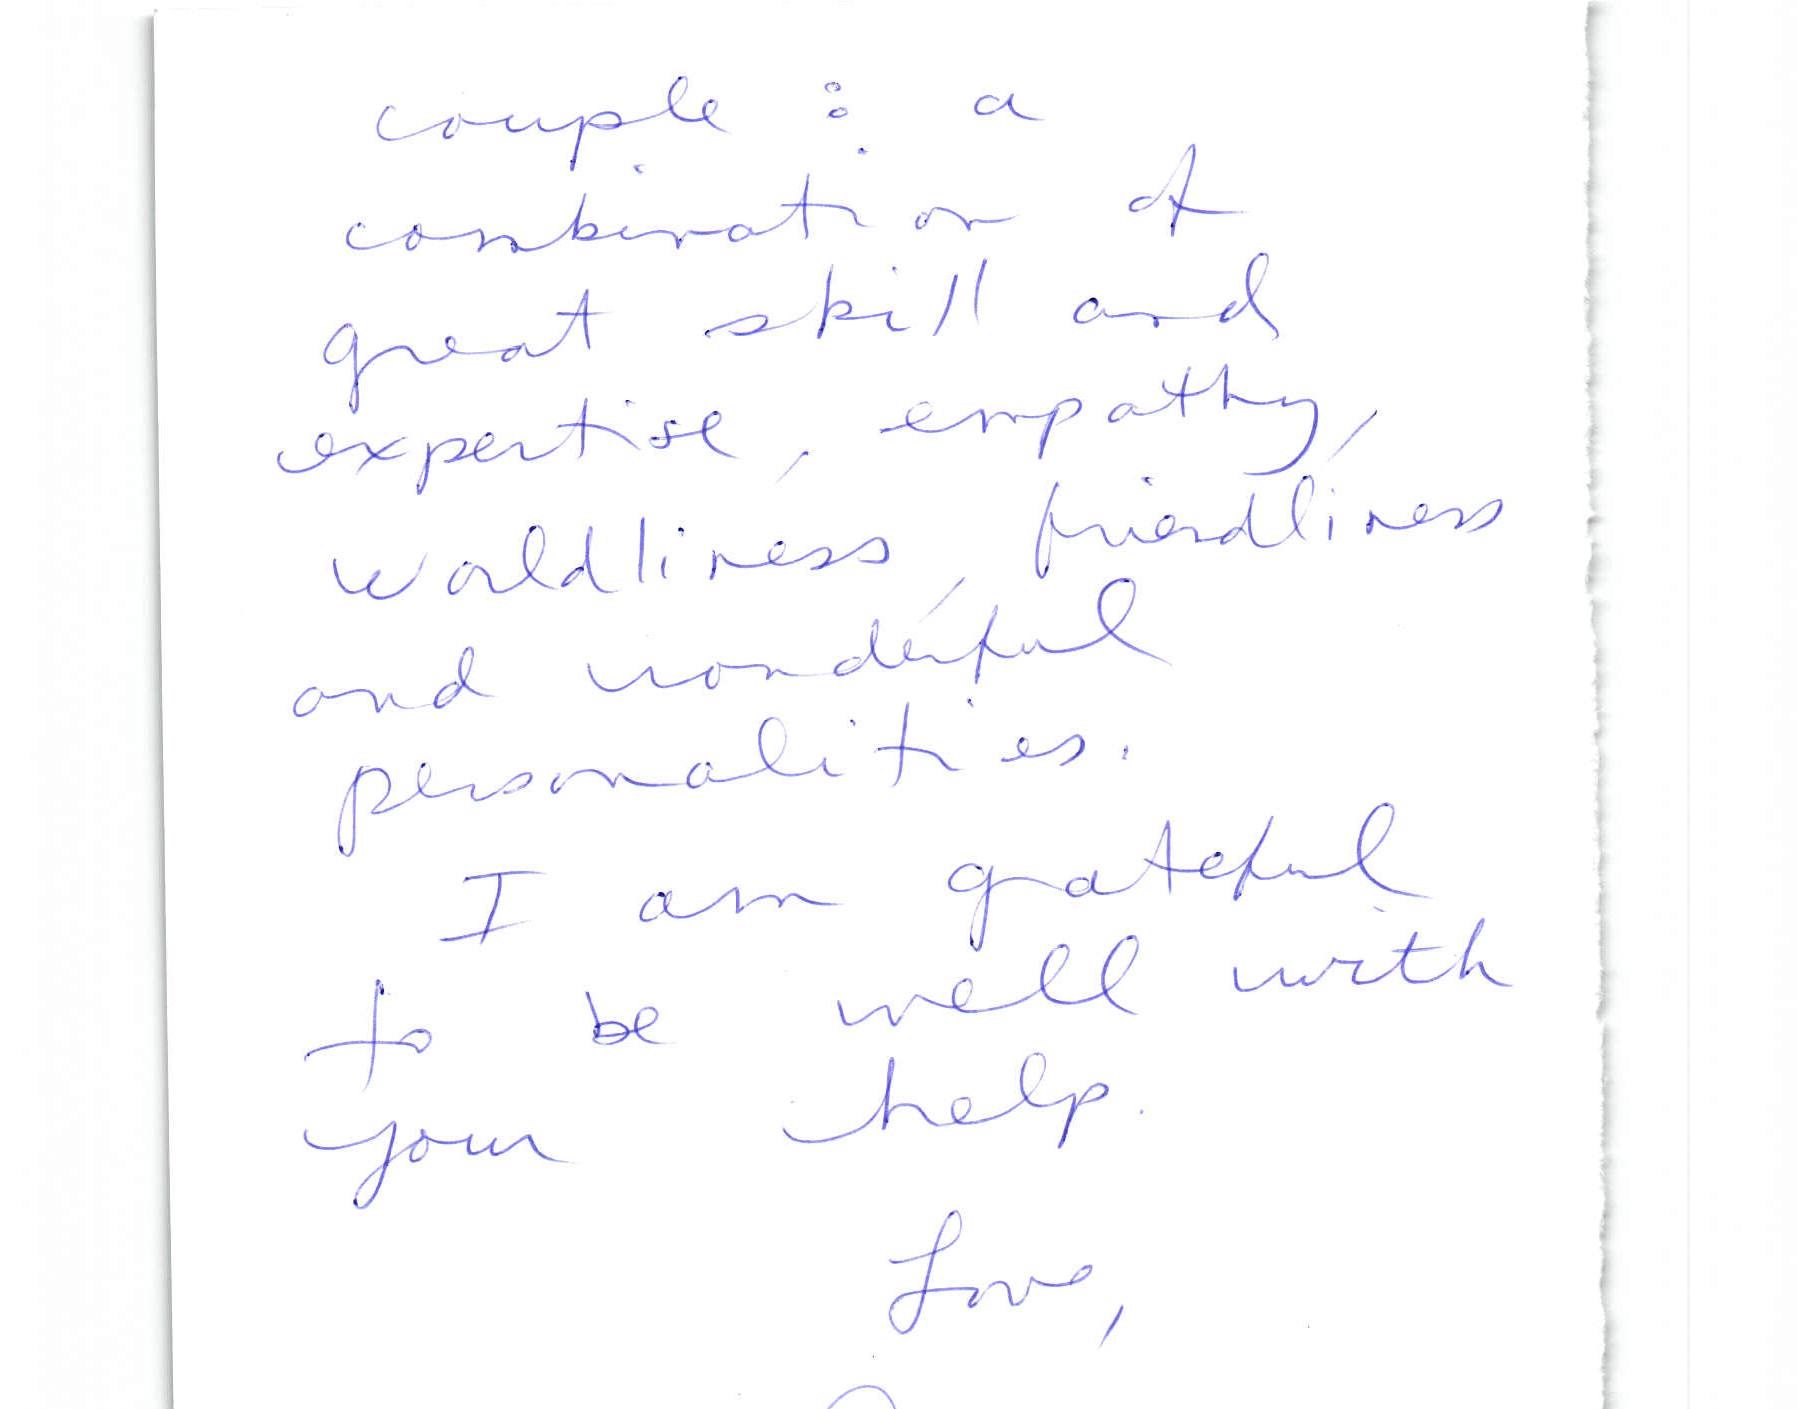 couple : a
combination of
great skill and
expertise, empathy,
worldliness, friendliness
and wonderful
personalities.
I am grateful
to be well with
your help.
Love,